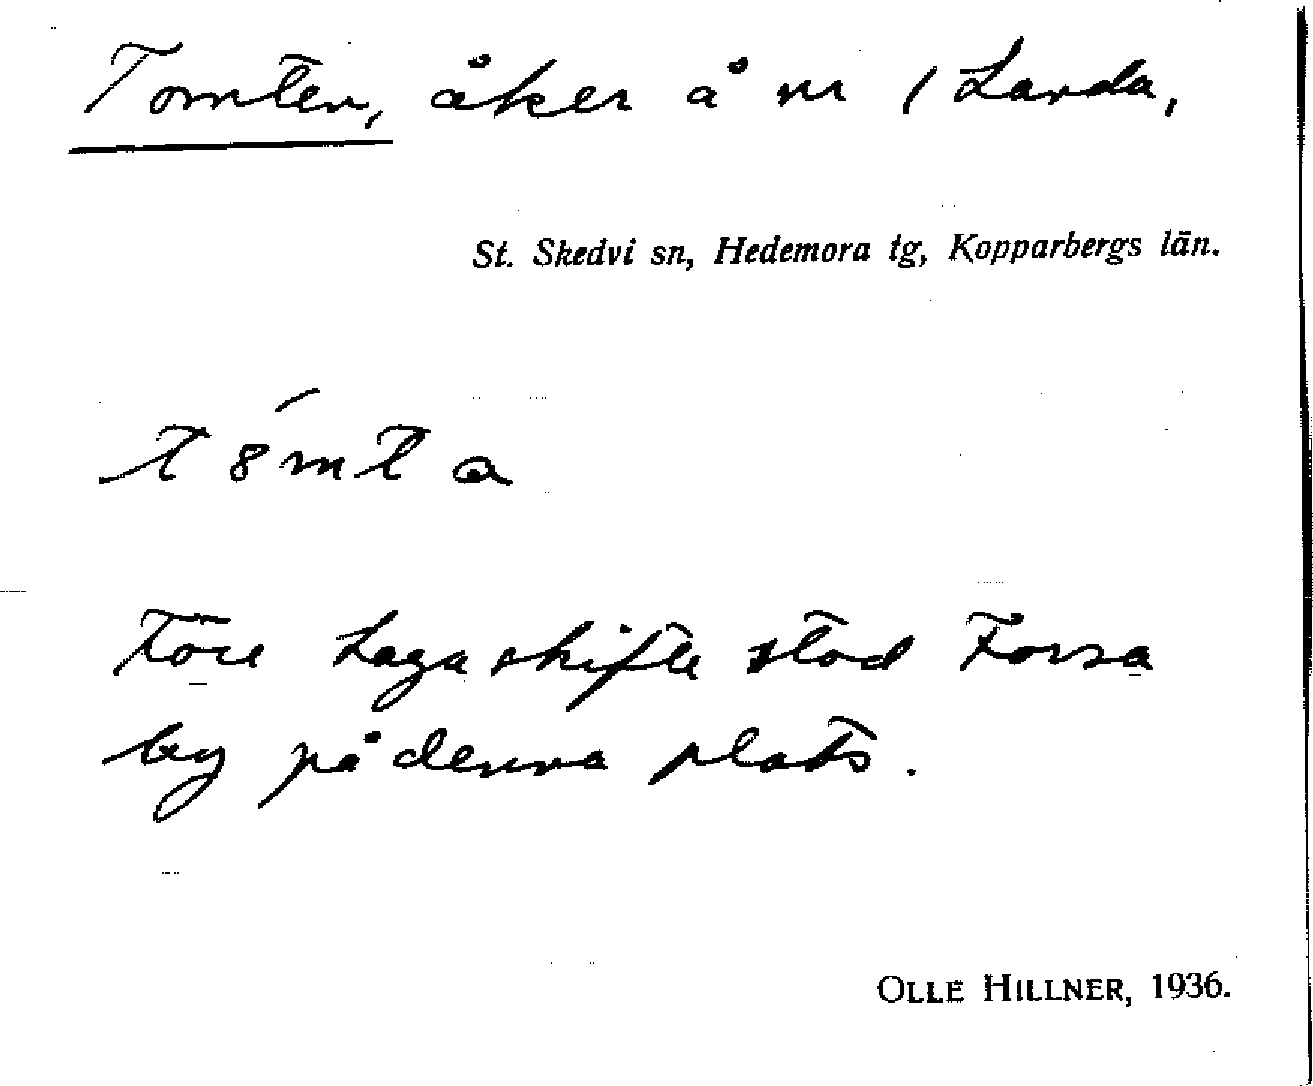 Tomten, åker å nr 1 Landa,
St. Skedvi sn, Hedemora tg, Kopparbergs län.
t8́mta
Före Laga skifte stod Forsa
by på denna plats.
OLLE HILLNER, 1936.